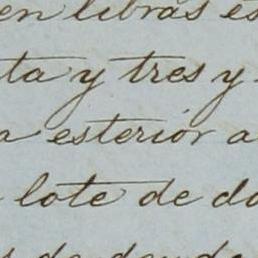 en libras es
ta y tres y
a esterior a
lote de do
de donde